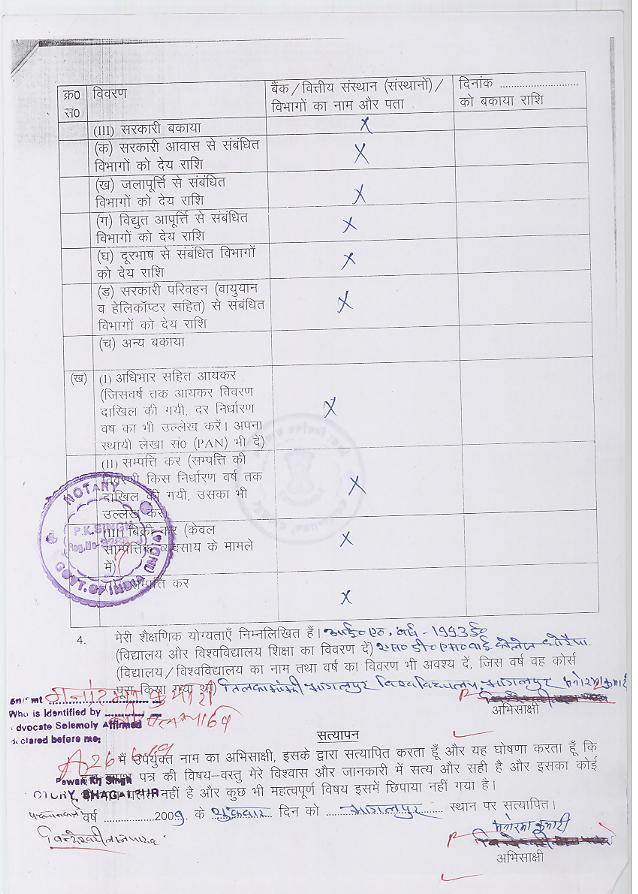 क्र0 विवरण बैंक/वित्तीय संस्थान (संस्थानों)/ दिनांक ............................
स0 विभागों का नाम और पता को बकाया राशि
(III) सरकारी बकाया X
(क) सरकारी आवास से संबंधित X
विभागों को देय राशि
(ख) जलापूर्त्ति से संबंधित X
विभागों को देय राशि
(ग) विद्युत आपूर्त्ति से संबंधित X
विभागों को देय राशि
(घ) दूरभाष से संबंधित विभागों X
को देय राशि
(ड) सरकारी परिवहन (वायुयान X
व हेलिकॉप्टर सहित) से संबंधित
विभागों को देय राशि
(च) अन्य बकाया
(ख) (I) अधिभार सहित आयकर
(जिसवर्ष तक आयकर विवरण X
दाखिल की गयी, दर निर्धारण
वष का भी उल्लेख करें। अपना
स्थायी लेखा स0 (PAN) भी दें)
(II) सम्पत्ति कर (सम्पत्ति की
किस निर्धारण वर्ष तक X
दाखिल की गयी, उसका भी
उल्लेख करें
(केवल X
व्यवसाय के मामले
में)
कर X
NOTARY
P.K.SINGH
Reg.No.
GOVT.OF INDIA (INDIA)
4. मेरी शैक्षणिक योग्यताएँ निम्नलिखित हैं। आई०ए०, वर्ष - 1993ई०
(विद्यालय और विश्वविद्यालय शिक्षा का विवरण दें)
(विद्यालय/विश्वविद्यालय का नाम तथा वर्ष का विवरण भी अवश्य दें, जिस वर्ष वह कोर्स
पूरा किया गया था) तिलकामांझी भागलपुर विश्वविद्यालय, भागलपुर
अभिसाक्षी
Who is Identified by
dvocate Solemoly Affirmed
declared before me;
सत्यापन
मैं उपर्युक्त नाम का अभिसाक्षी, इसके द्वारा सत्यापित करता हूँ और यह घोषणा करता हूँ कि
पत्र की विषय-वस्तु मेरे विश्वास और जानकारी में सत्य और सही है और इसका कोई
Pawan Kr Singh
नहीं है और कुछ भी महत्वपूर्ण विषय इसमें छिपाया नहीं गया है।
NOTARY BHAGALPUR
वर्ष ....................2009 के शुक्रवार दिन को भागलपुर स्थान पर सत्यापित।
अभिसाक्षी